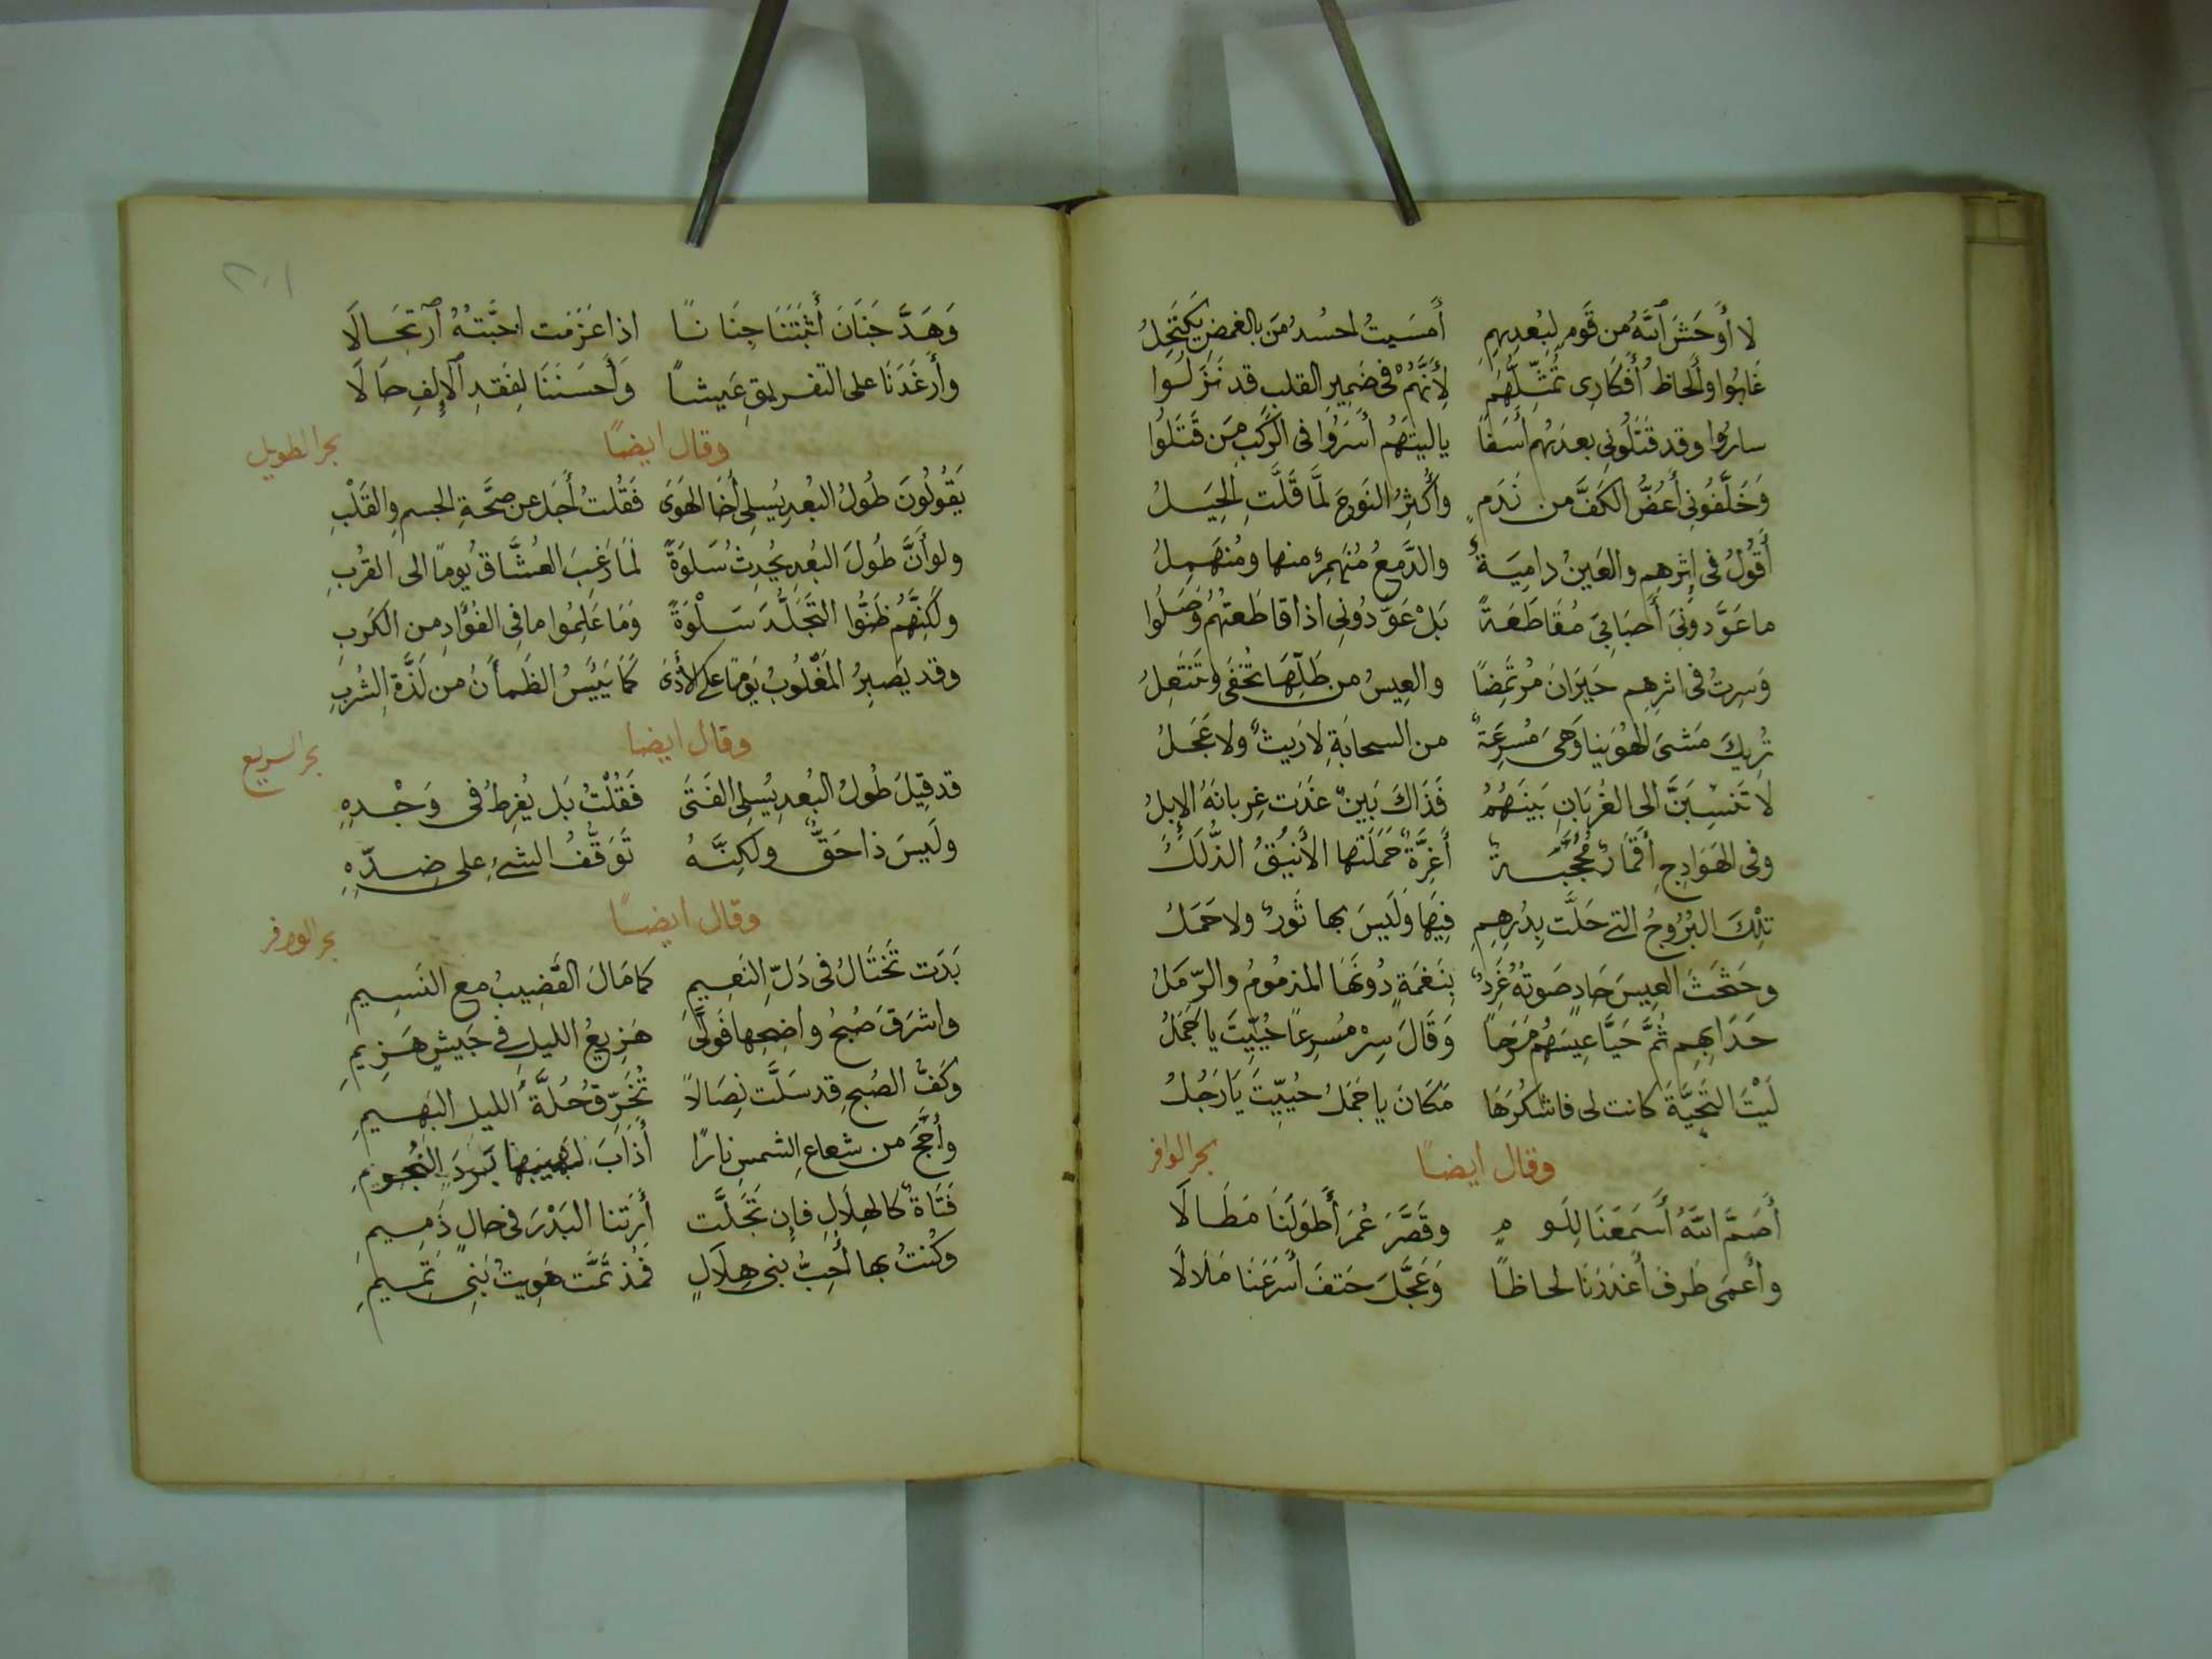 لا أَوحَشَ اللهُ من قَومٍ لِبُعدِهِمِ أَمسَيتُ احسُدُ مَن بالغمضِ يَكتَحِلُ
غَابُوا وأَلحاظُ أَفكَارِى تُمَثِّلُهُم لأنَّهُمْ فى ضَمِيرِ القلب قد نَزَلُوا
سارُوا وقد قَتَلُونِى بعدَهُم أَسَفاً ياليتَهُم أَسَرُوا فى الرَّكبِ مَن قَتَلُوا
وَخَلَّفُونِى أَعُضُّ الكَفَّ من نَدَمٍ وأُكثِرُ النَوحَ لَمَّا قَلَّتِ الحِيَلُ
أَقُولُ فى إِثرِهِم والعَينُ دامِيَةٌ والدَّمعُ مُنهَمِرٌ منها ومُنهَمِلُ
ما عَوَّدونِىَ أَحبَابِىَ مُقَاطَعَةً بَلْ عَوَّدُونِى اذا قاطَعتُهُم وَصَلُوا
وَسِرتُ فى اثرِهِم حَيرَانَ مُرتَمِضًا والعِيسُ من طَلِّهَا تُحفَى وتَنتَعِلُ
تُرِيكَ مَشىَ الهُوَينا وَهىَ مُسرِعَةٌ من السحابَةِ لا رَيثٌ ولا عَجَلُ
لا تَنسِبَنَّ الى الغربَانِ بَينَهُمُ فَذَاكَ بَينٌ غَدَت غِربانَهُ الإِبلُ
وفى الهَوَادِجِ أَقمَارٌ مُحَجَّبَةٌ أَغِرَّةٌ حَمَلَتها الأَينُقُ الذُّلَلُ
تِلكَ البُرُوجُ التى حَلَّت بِدُورِهِمِ فِيهَا وَلَيسَ بها ثَورٌ ولا حَمَلُ
وحَثحَثَ العِيسَ حَادٍ صَوتُهُ غَرِدٌ بِنَغمَةٍ دُونَهَا المزمومُ والرّمَلُ
حَدَا بِهِم ثُمَّ حَيَّا عِيسَهُم مَرَحاً وَقَالَ سِرْ مُسرِعًا حُيِّيتَ يا جَمَلُ
لَيْتَ التَحِيَّةَ كانت لى فاشكُرَهَا مَكَانَ يا جَمَلُ حُيِّيتَ يَا رَجُلُ
وقال ايضًا بحر الوافر
أَصَمَّ اللهُ أَسمَعَنَا لِلَومٍ وقَصَّرَ عُمرَ أَطوَلَنَا مَطَالَا
وأَعمَى طَرفَ أَغدَرَنَا لحاظاً وَعَجَّلَ حَتفَ أَسرَعَنَا مَلَالَا
٢٠١
وَهَدَّ جَنَانَ أَثبَتَنَا جِنَانًا اذا عَزَمَت احبَّتهُ ارتِحَالَا
وأَرغَدَنَا على التفريقِ عَيشاً وَأَحسَنَنَا لِفَقدِ الإِلفِ حَالَا
وقال ايضًا بحر الطويل
يَقُولُونَ طُولُ البُعدِ يُسلِى أَخَا الهَوَى فَقُلتُ أَجَل عن صحَّةِ الجسمِ والقَلْبِ
ولو أَنَّ طُولَ البُعدِ يُحدِثُ سُلوَةً لَمَا رَغِبَ العُشَّاقُ يومًا الى القُربِ
ولكنَّهُم ظَنُّوا التَجَلُّدَ سَلْوَةً وَمَا عَلِمُوا ما فِى الفُؤَادِ من الكَربِ
وقد يَصبِرُ المَغلُوبُ يَومًا على الأَذَى كَمَا يَيْئَسُ الظَمأَنُ من لَذَّةِ الشُربِ
وقال ايضا بحر السريع
قد قِيلَ طُولُ البُعدِ يُسلِى الفَتَى فَقُلْتُ بَل يُفرِطُ فى وَجْدِهِ
ولَيسَ ذا حَقٌّ ولكِنَّهُ تَوَقُّفُ الشئِ على ضِدّهِ
وقال ايضًا بحر الوافر
بَدَت تَختَالُ فى دَلِّ النَعِيمِ كما مَالَ القَضِيبُ مع النَسِيمِ
واشرَقَ صُبحُ واضِحِها فَوَلَّى هَزِيعُ الليلِ فى جَيشٍ هَزِيمِ
وكَفُّ الصُبحِ قد سَلَّت نِصَالاً تُخَرِّقُ حُلَّةَ الليلِ البَهيمِ
وأَجَّجَ من شعاعِ الشمسِ نارًا أَذَابَ لهيبها بَرَدَ النُجومِ
فَتَاةٌ كالهِلَالِ فإِن تَجَلَّت أَرَتنا البَدْرَ فى حالٍ ذَمِيمِ
وكُنتُ بها أُحِبُّ بنى هِلَالٍ فمُذ تَمَّت هَوِيتُ بَنِى تَمِيمِ